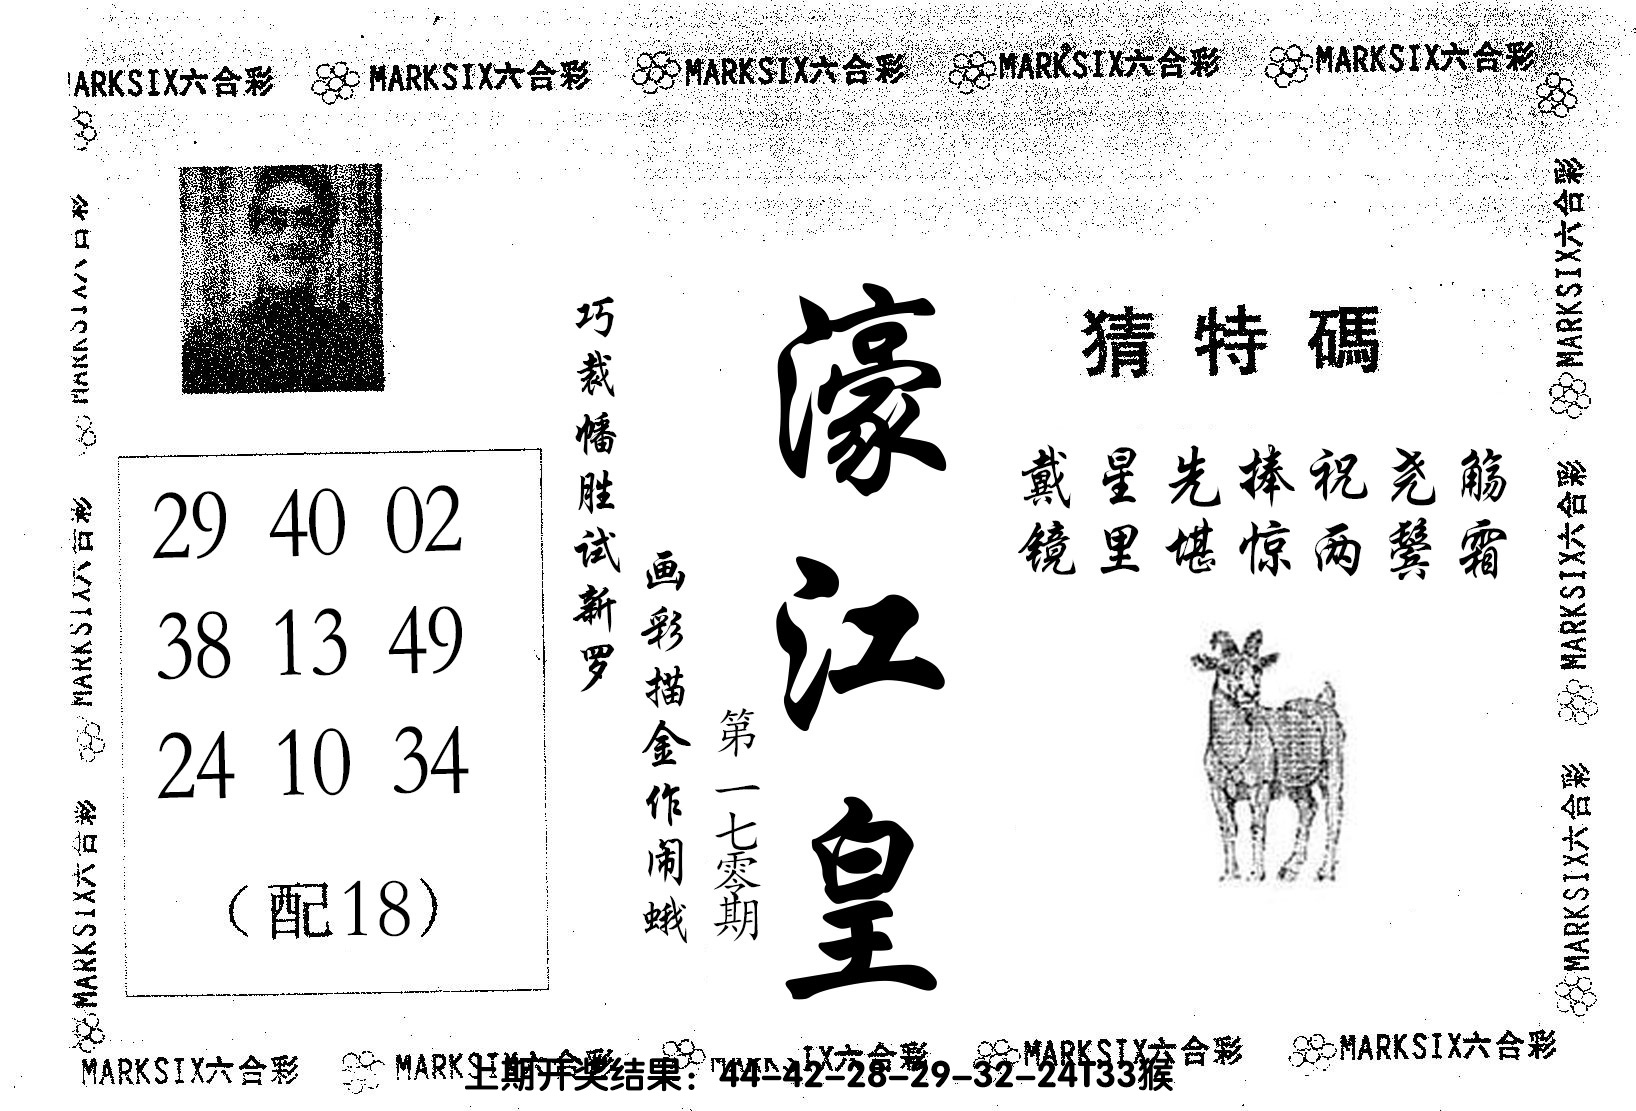 MARKSIX六合彩 MARKSIX六合彩 MARKSIX六合彩 MARKSIX六合彩 MARKSIX六合彩
猜特碼
戴星先捧祝尧觞
镜里堪惊两鬓霜
濠江皇
第一七零期
巧裁幡胜试新罗
画彩描金作闹蛾
29 40 02
38 13 49
24 10 34
（配18）
MARKSIX六合彩
MARKSIX六合彩
MARKSIX六合彩
MARKSIX六合彩
MARKSIX六合彩
MARKSIX六合彩
MARKSIX六合彩 MARKSIX六合彩 MARKSIX六合彩 MARKSIX六合彩
上期开奖结果：44-42-28-29-32-24T33猴